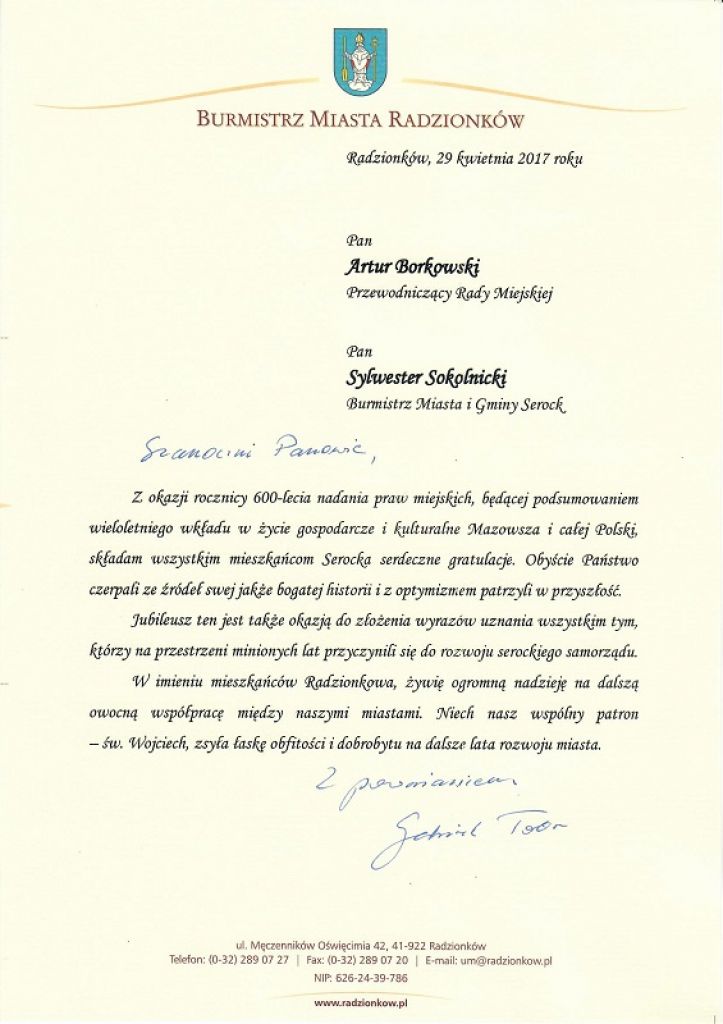 BURMISTRZ MIASTA RADZIONKÓW
Radzionków, 29 kwietnia 2017 roku
Pan
Artur Borkowski
Przewodniczący Rady Miejskiej
Pan
Sylwester Sokolnicki
Burmistrz Miasta i Gminy Serock
Szanowni Panowie,
Z okazji rocznicy 600-lecia nadania praw miejskich, będącej podsumowaniem
wieloletniego wkładu w życie gospodarcze i kulturalne Mazowsza i całej Polski,
składam wszystkim mieszkańcom Serocka serdeczne gratulacje. Obyście Państwo
czerpali ze źródeł swej jakże bogatej historii i z optymizmem patrzyli w przyszłość.
Jubileusz ten jest także okazją do złożenia wyrazów uznania wszystkim tym,
którzy na przestrzeni minionych lat przyczynili się do rozwoju serockiego samorządu.
W imieniu mieszkańców Radzionkowa, żywię ogromną nadzieję na dalszą
owocną współpracę między naszymi miastami. Niech nasz wspólny patron
– św. Wojciech, zsyła łaskę obfitości i dobrobytu na dalsze lata rozwoju miasta.
Z poważaniem
Gabriel Tobor
ul. Męczenników Oświęcimia 42, 41-922 Radzionków
Telefon: (0-32) 289 07 27 | Fax: (0-32) 289 07 20 | E-mail: um@radzionkow.pl
NIP: 626-24-39-786
www.radzionkow.pl